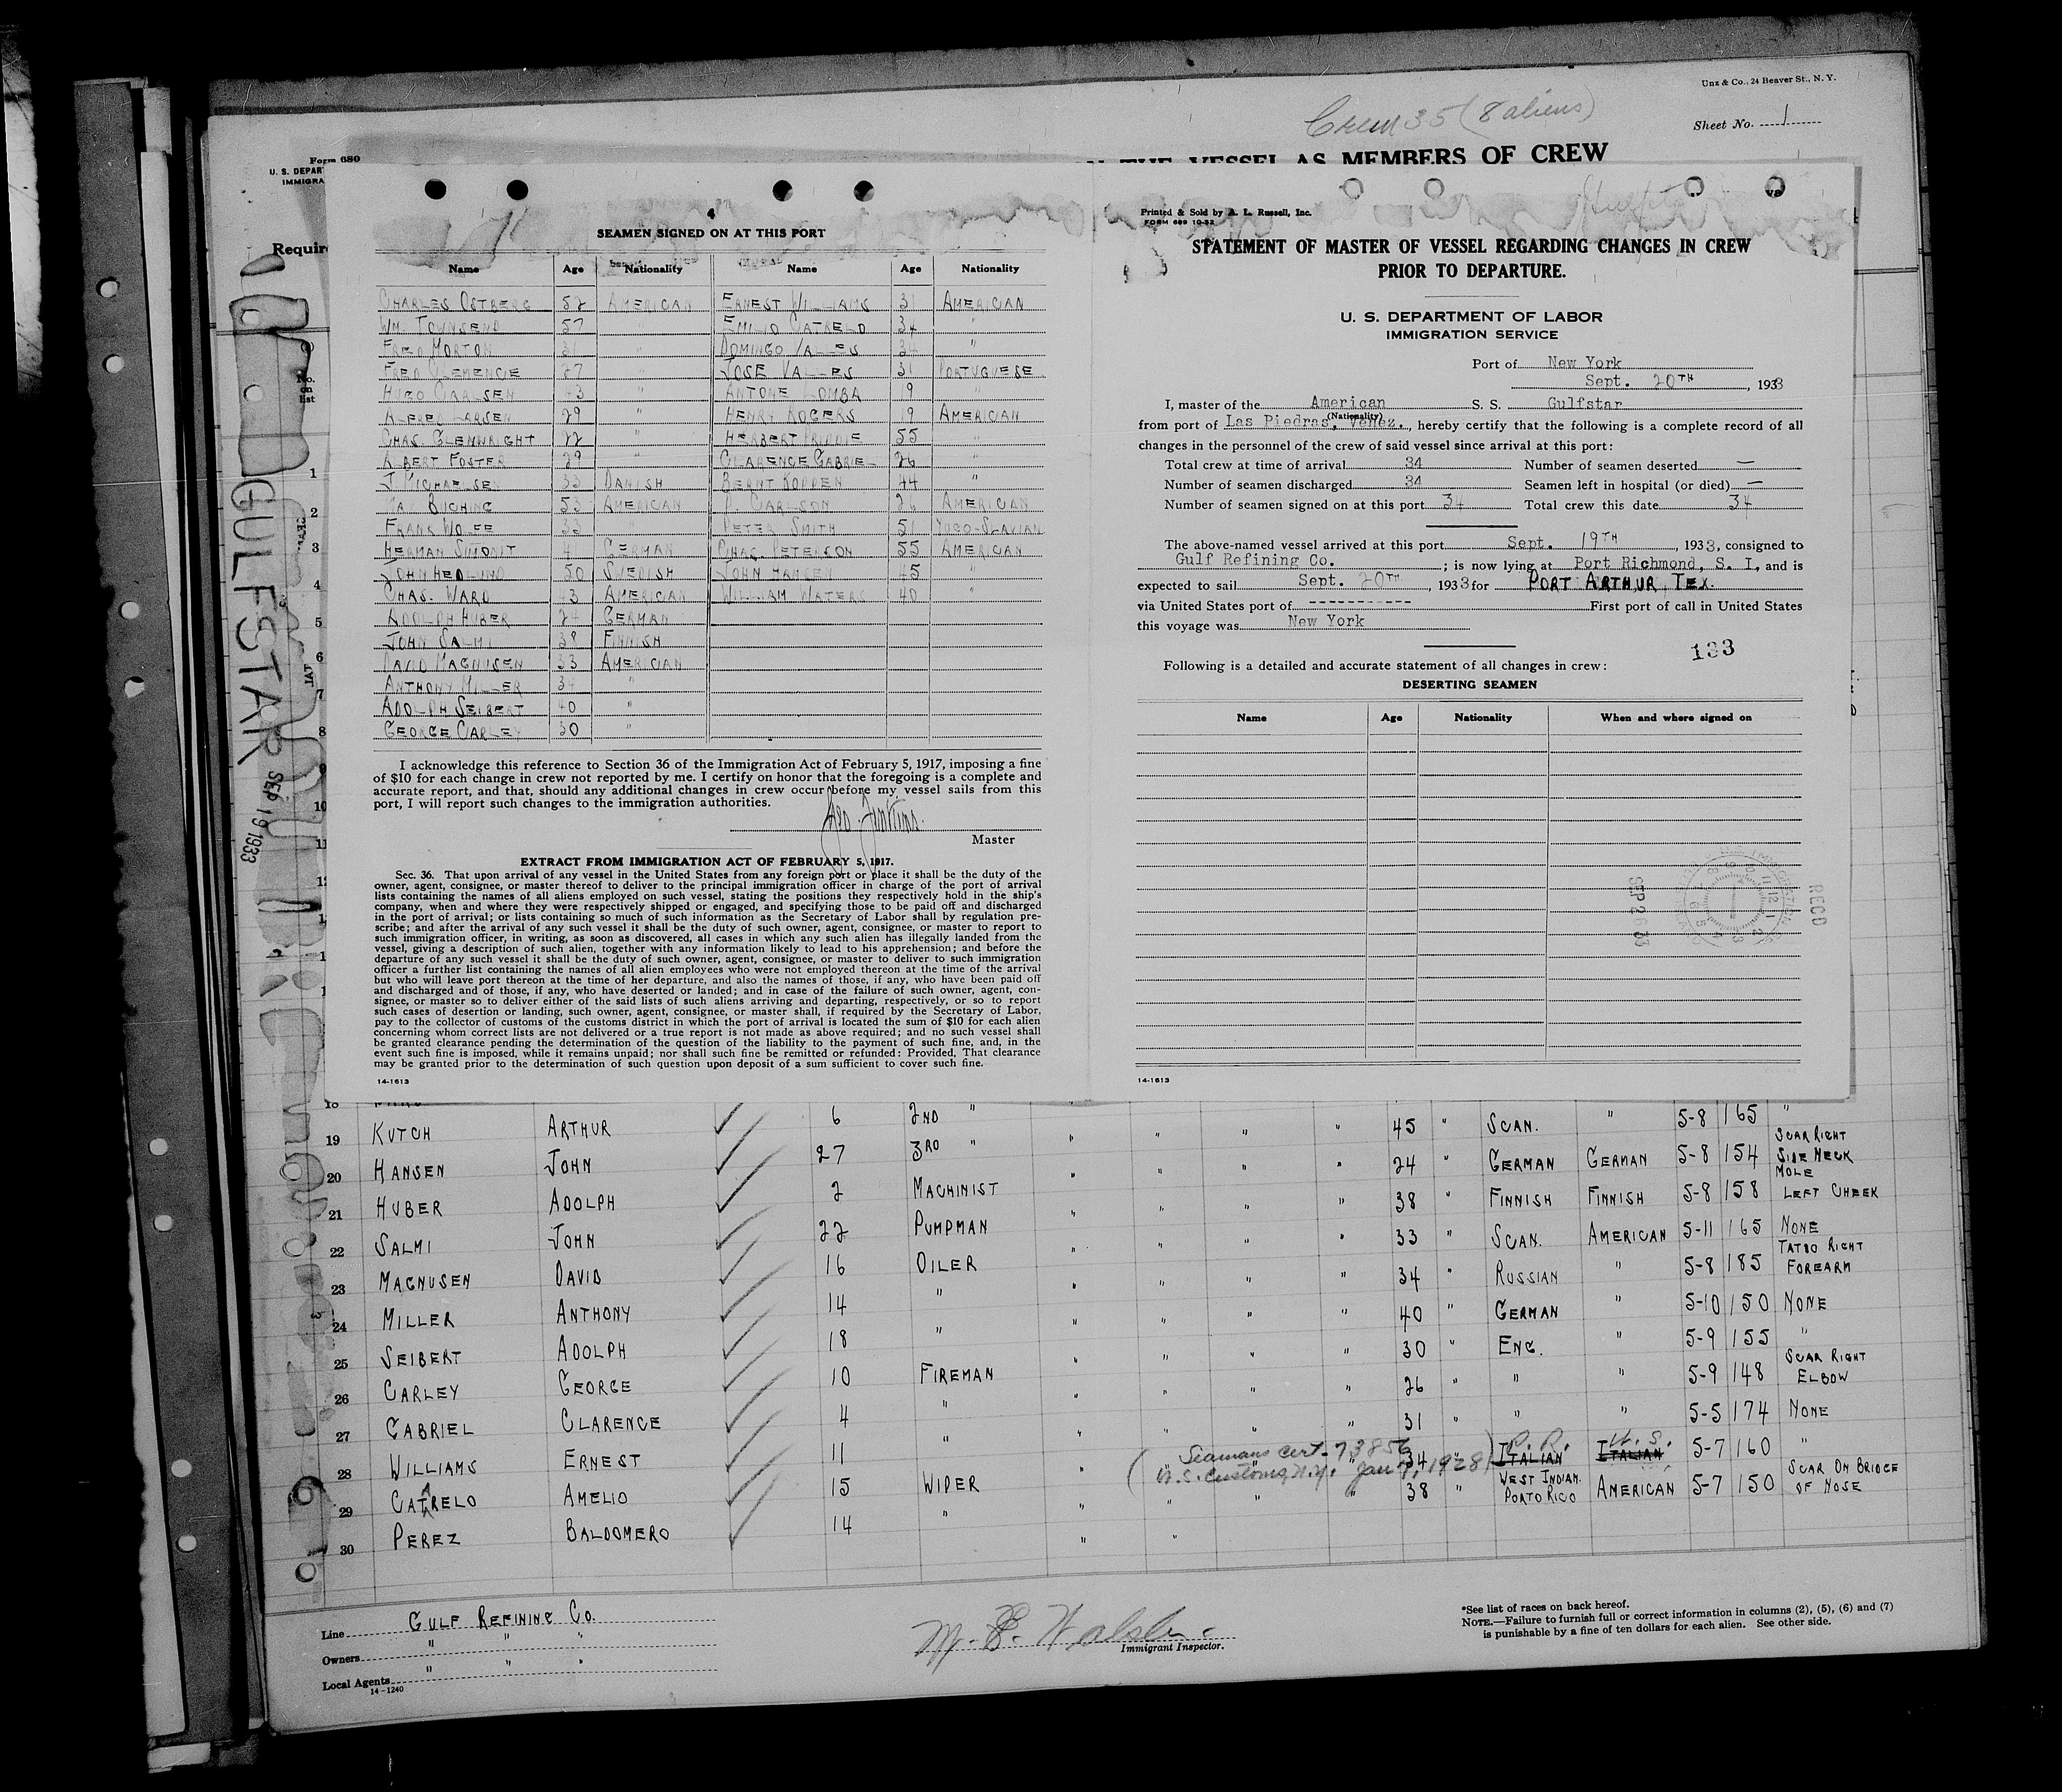 Unz & Co., 24 Beaver St., N. Y.
Crew 35 (8 aliens)
Sheet No. 1
THE VESSEL AS MEMBERS OF CREW
Form 680
U. S. DEPART
IMMIGRA
Requir
No. on list
GULFSTAR
SEP 19 1933
4
SEAMEN SIGNED ON AT THIS PORT
Name Age Nationality Name Age Nationality
CHARLES OSTBERG 52 AMERICAN ERNEST WILLIAMS 31 AMERICAN
WM. TOWNSEND 57 " EMILIO CATRELO 34 "
FRED MORTON 31 " DOMINGO VALLES 34 "
FRED CLEMENCIE 27 " JOSE VALLES 31 PORTUGUESE
HUGO CARLSEN 43 " ANTONE LOMBA 19 "
ALFRED LARSEN 29 " HENRY ROGERS 19 AMERICAN
CHAS. GLENWRIGHT 22 " HERBERT 55 "
ALBERT FOSTER 29 " CLARENCE GABRIEL 26 "
J. MICHAELSEN 33 DANISH BERNT 44 "
BUCHING 53 AMERICAN CARLSON 26 AMERICAN
FRANK WOLFE 33 " PETER SMITH 51 YUGO-SLAVIAN
HERMAN GERMAN CHAS. PETERSON 55 AMERICAN
JOHN HEDLUND 50 SWEDISH JOHN HANSEN 45 "
CHAS. WARD 43 AMERICAN WILLIAM WATERS 40 "
ADOLPH HUBER 24 GERMAN
JOHN SALMI 38 FINNISH
DAVID MAGNUSEN 33 AMERICAN
ANTHONY MILLER 34 "
ADOLPH SEIBERT 40 "
GEORGE CARLEY 30 "
I acknowledge this reference to Section 36 of the Immigration Act of February 5, 1917, imposing a fine
of $10 for each change in crew not reported by me. I certify on honor that the foregoing is a complete and
accurate report, and that, should any additional changes in crew occur before my vessel sails from this
port, I will report such changes to the immigration authorities.
Geo. Jenkins
Master
EXTRACT FROM IMMIGRATION ACT OF FEBRUARY 5, 1917.
Sec. 36. That upon arrival of any vessel in the United States from any foreign port or place it shall be the duty of the
owner, agent, consignee, or master thereof to deliver to the principal immigration officer in charge of the port of arrival
lists containing the names of all aliens employed on such vessel, stating the positions they respectively hold in the ship's
company, when and where they were respectively shipped or engaged, and specifying those to be paid off and discharged
in the port of arrival; or lists containing so much of such information as the Secretary of Labor shall by regulation pre-
scribe; and after the arrival of any such vessel it shall be the duty of such owner, agent, consignee, or master to report to
such immigration officer, in writing, as soon as discovered, all cases in which any such alien has illegally landed from the
vessel, giving a description of such alien, together with any information likely to lead to his apprehension; and before the
departure of any such vessel it shall be the duty of such owner, agent, consignee, or master to deliver to such immigration
officer a further list containing the names of all alien employees who were not employed thereon at the time of the arrival
but who will leave port thereon at the time of her departure, and also the names of those, if any, who have been paid off
and discharged and of those, if any, who have deserted or landed; and in case of the failure of such owner, agent, con-
signee, or master so to deliver either of the said lists of such aliens arriving and departing, respectively, or so to report
such cases of desertion or landing, such owner, agent, consignee, or master shall, if required by the Secretary of Labor,
pay to the collector of customs of the customs district in which the port of arrival is located the sum of $10 for each alien
concerning whom correct lists are not delivered or a true report is not made as above required; and no such vessel shall
be granted clearance pending the determination of the question of the liability to the payment of such fine, and, in the
event such fine is imposed, while it remains unpaid; nor shall such fine be remitted or refunded: Provided, That clearance
may be granted prior to the determination of such question upon deposit of a sum sufficient to cover such fine.
14-1613
Printed & Sold by A. L. Russell, Inc.
FORM 689 10-32
STATEMENT OF MASTER OF VESSEL REGARDING CHANGES IN CREW
PRIOR TO DEPARTURE.
U. S. DEPARTMENT OF LABOR
IMMIGRATION SERVICE
Port of New York
Sept. 20TH, 1933
I, master of the American S. S. Gulfstar
(Nationality)
from port of Las Piedras, Venez., hereby certify that the following is a complete record of all
changes in the personnel of the crew of said vessel since arrival at this port:
Total crew at time of arrival 34 Number of seamen deserted —
Number of seamen discharged 34 Seamen left in hospital (or died) —
Number of seamen signed on at this port 34 Total crew this date 34
The above-named vessel arrived at this port Sept. 19TH, 1933, consigned to
Gulf Refining Co.; is now lying at Port Richmond, S. I, and is
expected to sail Sept. 20TH, 1933 for PORT ARTHUR, TEX.
via United States port of ----------- First port of call in United States
this voyage was New York
133
Following is a detailed and accurate statement of all changes in crew:
DESERTING SEAMEN
Name Age Nationality When and where signed on
RECD
SEP 26 33
14-1613
18 6 2ND " 45 " SCAN. " 5-8 165 "
19 KUTCH ARTHUR 27 3RD " 24 " GERMAN GERMAN 5-8 154 SCAR RIGHT SIDE NECK
20 HANSEN JOHN 2 MACHINIST 38 " FINNISH FINNISH 5-8 158 MOLE LEFT CHEEK
21 HUBER ADOLPH 22 PUMPMAN 33 " SCAN. AMERICAN 5-11 165 NONE
22 SALMI JOHN 16 OILER 34 " RUSSIAN " 5-8 185 TATOO RIGHT FOREARM
23 MAGNUSEN DAVID 14 " 40 " GERMAN " 5-10 150 NONE
24 MILLER ANTHONY 18 " 30 " ENG. " 5-9 155 "
25 SEIBERT ADOLPH 10 FIREMAN 26 " " " 5-9 148 SCAR RIGHT ELBOW
26 CARLEY GEORGE 4 " 31 " " " 5-5 174 NONE
27 GABRIEL CLARENCE 11 " 34 " ITALIAN P. R. ITALIAN U. S. 5-7 160 "
(Seamans cert. 73856
U.S. Customs, N.Y. Jan 7, 1928)
28 WILLIAMS ERNEST 15 WIPER 38 " WEST INDIAN. PORTO RICO AMERICAN 5-7 150 SCAR ON BRIDGE OF NOSE
29 CATRELO AMELIO 14 "
30 PEREZ BALDOMERO
Line GULF REFINING CO.
Owners " " "
Local Agents " " "
14-1240
Immigrant Inspector.
*See list of races on back hereof.
NOTE.—Failure to furnish full or correct information in columns (2), (5), (6) and (7)
is punishable by a fine of ten dollars for each alien. See other side.